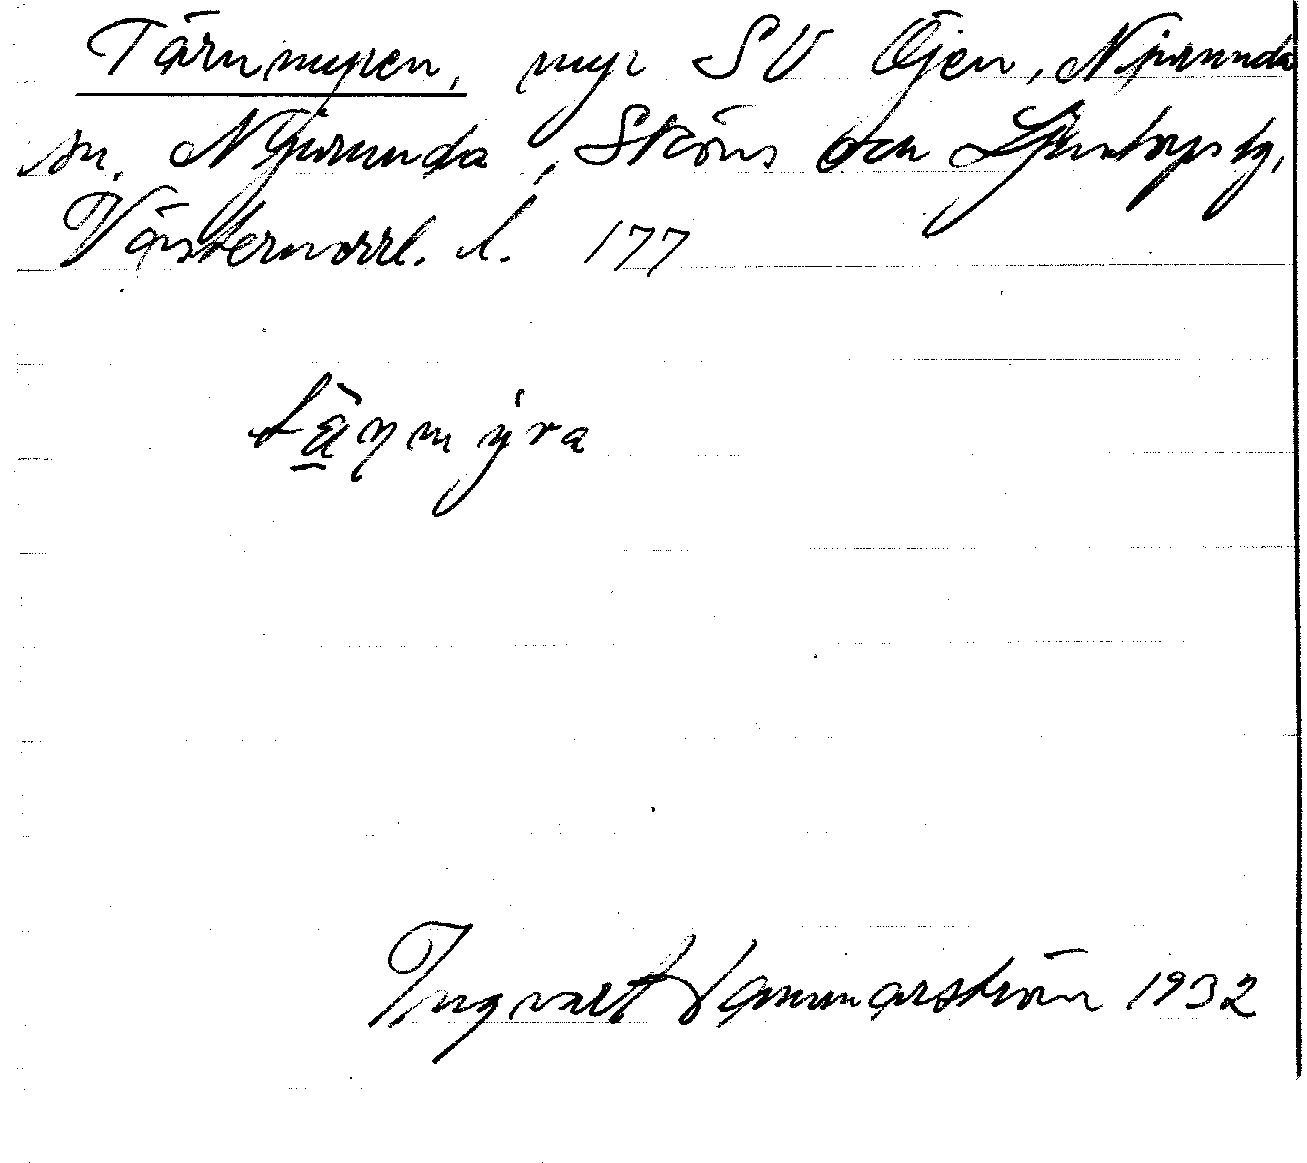 Tärnmyren, myr SV Öjen, Njurunda
sn. Njurunda, Sköns och Ljustorps tg,
Västernorrl. l. 177
tä̱ṇmýra
Ingvart Hammarström 1932